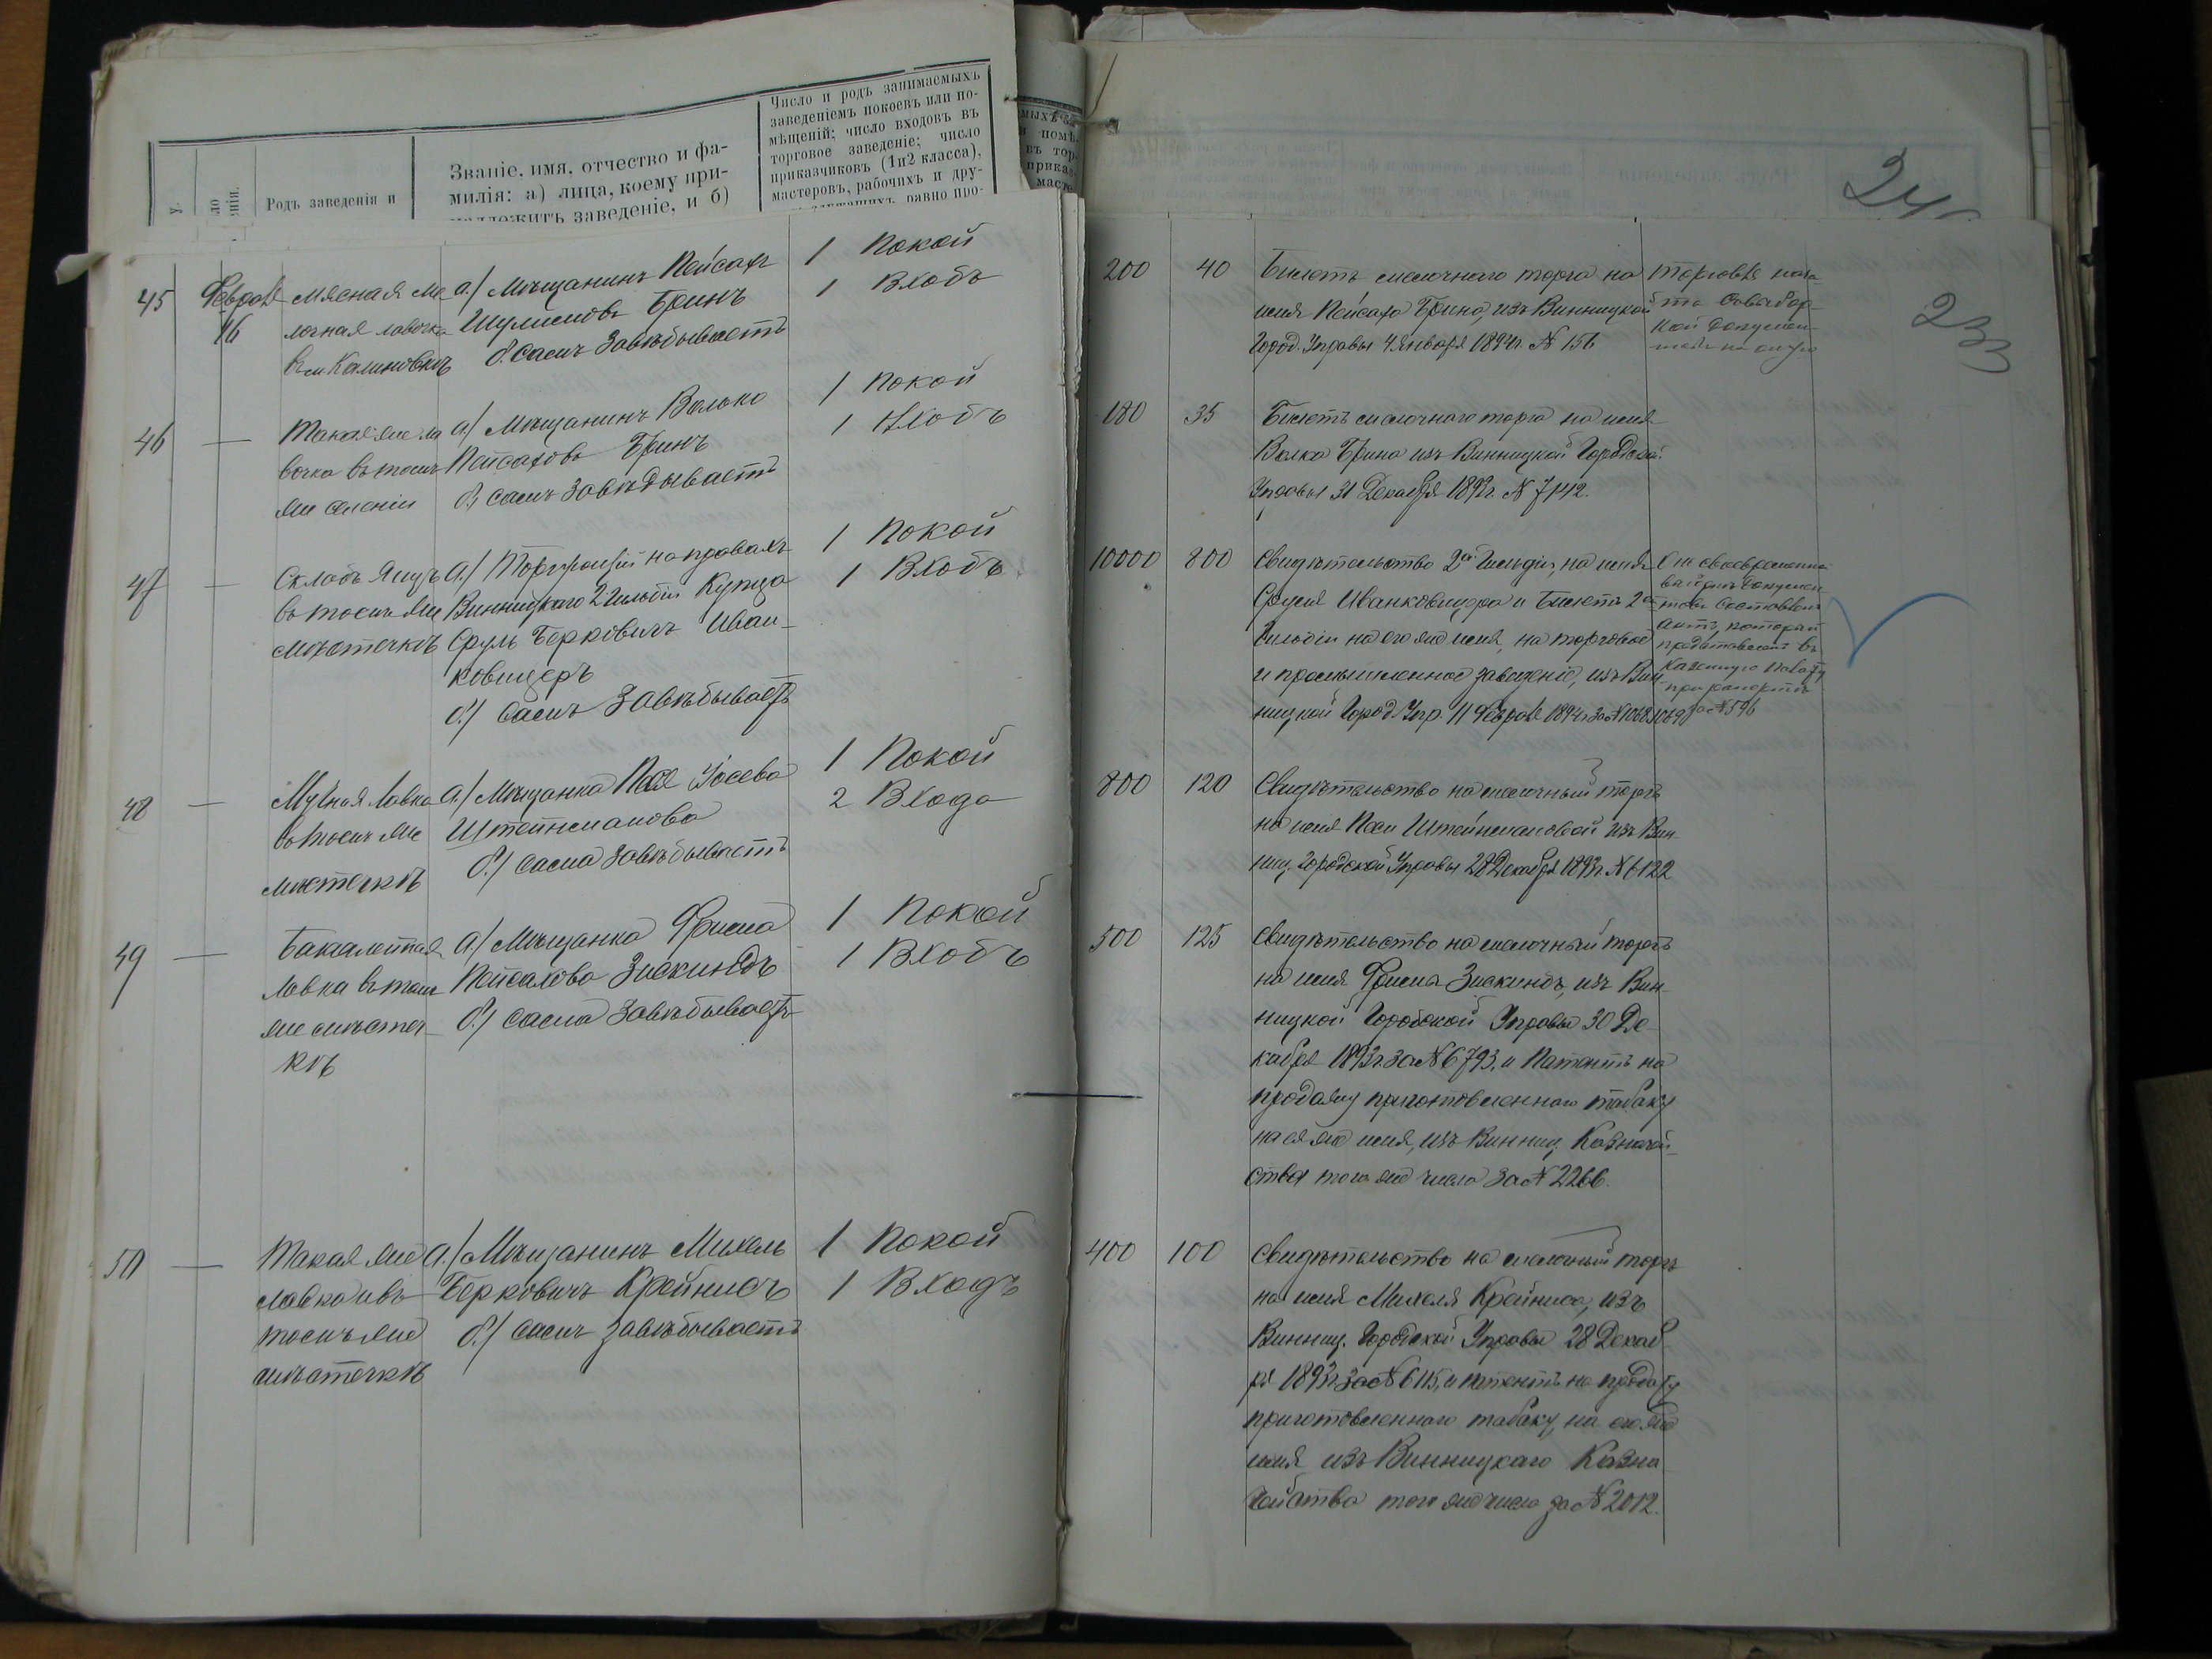 Родъ заведенія и
Званіе, имя, отчество и фа-
милія: а) лица, коему при-
надлежитъ заведеніе, и б)
Число и родъ занимаемыхъ
заведеніемъ покоевъ или по-
мѣщеній; число входовъ въ
торговое заведеніе; число
приказчиковъ (1и2 класса),
мастеровъ, рабочихъ и дру-
равно про-
24
233
45
Февраля
16
Мясная ме
лочная лавочка
въ м. Калиновкѣ
а/ Мѣщанинъ Пейсахъ
Шулимовъ Бринъ
б. Самъ завѣдываетъ
1 Покой
1 Входъ
200
40
Билетъ мелочнаго торга на
имя Пейсаха Брина, изъ Винницкой
Город. Управы 4 Января 1894 г. № 156
Торговля
46
—
Такая же ла
вочка въ томъ
же селеніи
а/ Мѣщанинъ Волько
Пейсаховъ Бринъ
б/ самъ завѣдываетъ
1 Покой
1 Входъ
180
35
Билетъ мелочнаго торга на имя
Волка Брина изъ Винницкой Городской
Управы 31 Декабря 1893 г. № 7142.
47
—
Складъ яицъ
въ томъ же
мѣстечкѣ
а/ Торгующій на правахъ
Винницкаго 2 гильдіи Купца
Сруль Берковичъ Иван-
ковицеръ
б/ Самъ завѣдываетъ
1 Покой
1 Входъ
10000
800
Свидѣтельство 2ой Гильдіи, на имя
Сруля Иванковицера и Билетъ 2ой
Гильдіи на его же имя, на торговое
и промышленное заведеніе, изъ Вин
ницкой Город. Упр. 11 Февраля 1894 г. за № 1068, 1069
актъ, который
представленъ въ
Казенную Палату
при рапортѣ
за № 596
48
—
Мучная Лавка
въ томъ же
мѣстечкѣ
а/ Мѣщанка Пася Іосева
Штейнманова
б/ Сама завѣдываетъ
1 Покой
2 Входа
800
120
Свидѣтельство на мелочный торгъ
на имя Паси Штейнмановой изъ Вин-
ниц. Городской Управы 28 Декабря 1893 г. № 6122
49
—
Бакалейная
Лавка въ томъ
же мѣстеч-
кѣ
а/ Мѣщанка Фрима
Пейсахова Зискиндъ
б/ Сама завѣдываетъ
1 Покой
1 Входъ
500
125
Свидѣтельство на мелочный торгъ
на имя Фрима Зискиндъ, изъ Вин-
ницкой Городской Управы 30 Де-
кабря 1893 г. за № 6793, и Патентъ на
продажу приготовленнаго табаку
на ея же имя, изъ Винниц. Казначей-
ства того же числа за № 2266.
50
—
Такая же
лавка въ
томъ же
мѣстечкѣ
а/ Мѣщанинъ Михель
Берковичъ Крайнисъ
б/ Самъ завѣдываетъ
1 Покой
1 Входъ
400
100
Свидѣтельство на мелочный торгъ
на имя Михеля Крайниса, изъ
Винниц. Городской Управы 28 Декаб
ря 1893 г. за № 6115, и патентъ на продажу
приготовленнаго табаку, на его же
имя изъ Винницкаго Казна
чейства того же числа за № 2012.